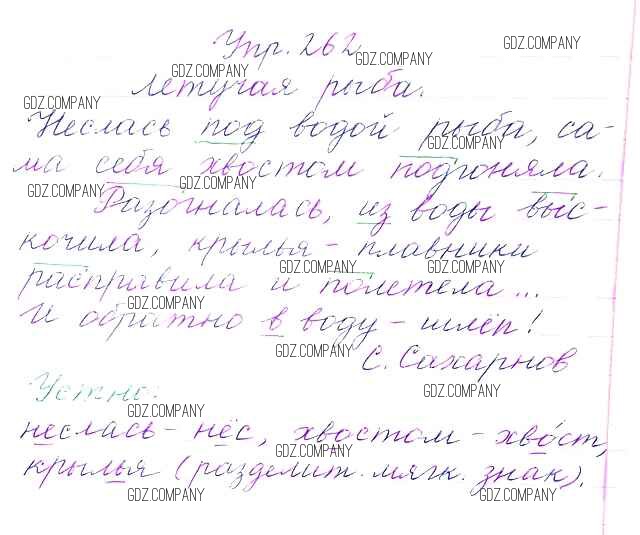 Упр. 262
GDZ.COMPANY GDZ.COMPANY GDZ.COMPANY
Летучая рыба.
GDZ.COMPANY
Неслась под водой рыба, са-
GDZ.COMPANY
ма себя хвостом подгоняла.
GDZ.COMPANY GDZ.COMPANY
Разогналась, из воды выс-
кочила, крылья - плавники
GDZ.COMPANY GDZ.COMPANY
расправила и полетела...
GDZ.COMPANY
И обратно в воду - шлёп!
GDZ.COMPANY
С. Сахарнов
Устно:
GDZ.COMPANY
GDZ.COMPANY
неслась - нёс, хвостом - хвóст,
GDZ.COMPANY
крылья (разделит. мягк. знак).
GDZ.COMPANY GDZ.COMPANY